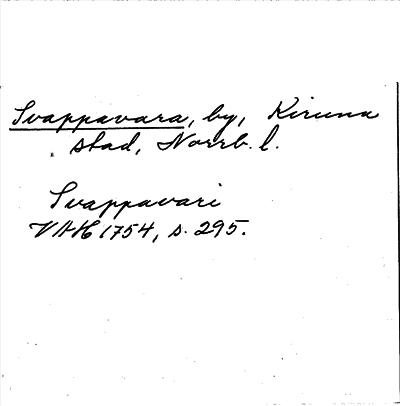 Svappavara, by, Kiruna
stad, Norrb. l.
Svappavari
VAH 1754, s. 295.